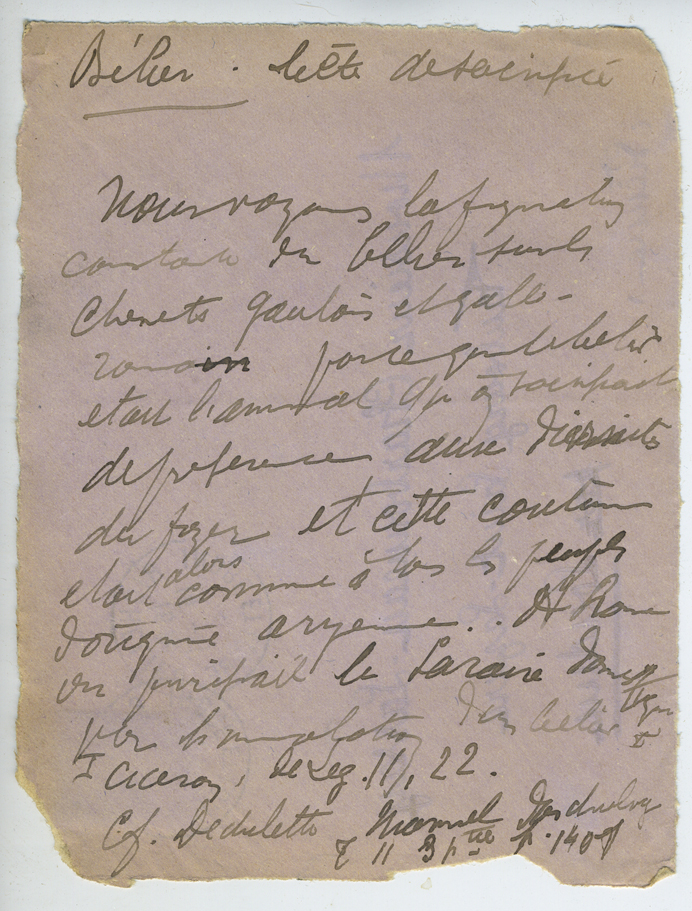 Bélier. bête de sacrifice
Nous voyons la figuration
constante du bélier sur les
chenets gaulois et gallo-
romain parce que le bélier
etait l'animal qu'on sacrifiait
de preference aux divinités
du foyer et cette coutume
etait alors commune à tous les peuples
d'origine aryenne.. A Rome
on purifiait le Laraire domestique
par l'immolation d'un bélier I
I Ciceron, de Leg. II, 22.
Cf. Dechelette Manuel d'archeologie
T II 3e ptie p. 1407